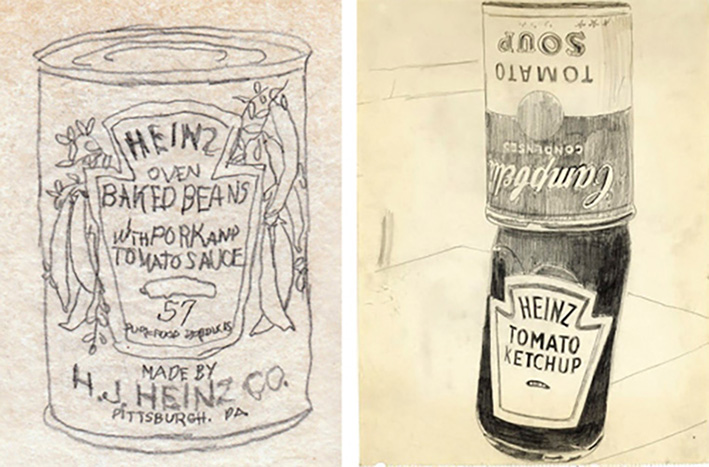 HEINZ
OVEN
BAKED BEANS
WITH PORK AND
TOMATO SAUCE
57
PURE FOOD PRODUCTS
MADE BY
H.J. HEINZ CO.
PITTSBURGH. PA.
TOMATO
SOUP
Campbell
CONDENSED
HEINZ
TOMATO
KETCHUP
HEINZ